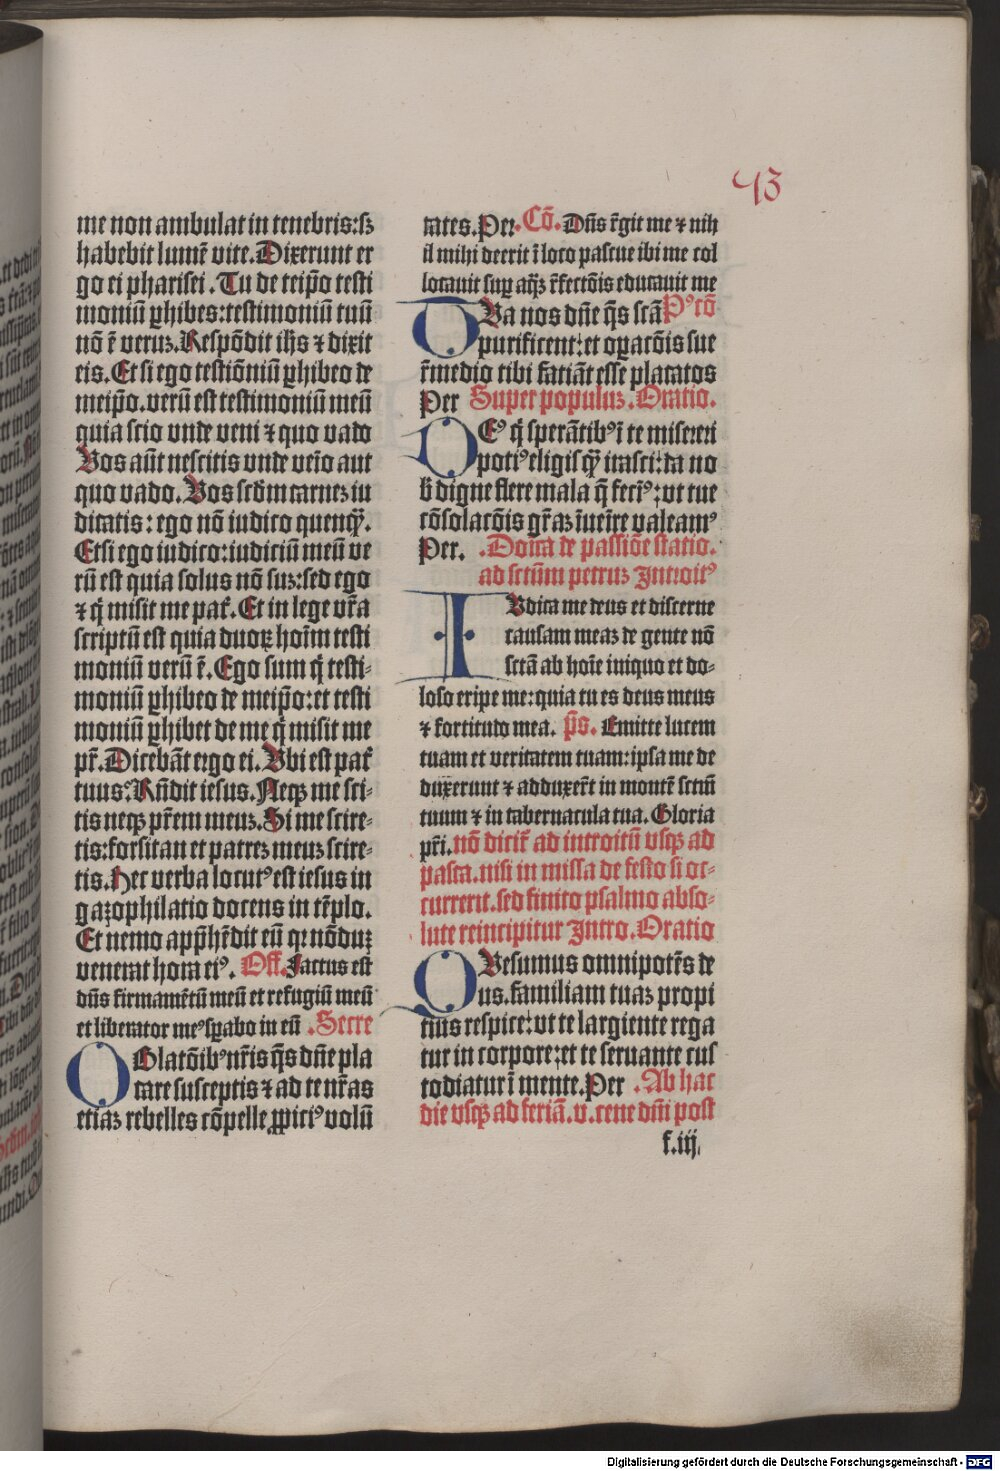 43
me non ambulat in tenebris: sꝫ
habebit lumē vite. Dixerunt er
go ei pharisei. Tu de teip̄o testi
moniū ꝑhibes: testimoniū tuū
nō ē veruꝫ. Respōdit ih̄s ⁊ dixit
eis. Et si ego testiōniū ꝑhibeo de
meip̄o. verū est testimoniū meū
quia scio vnde veni ⁊ quo vado
Vos aūt nescitis vnde veīo aut
quo vado. Vos scd̄m carneꝫ iu
dicatis: ego nō iudico quenqꝫ̄.
Etsi ego iudico: iudiciū meū ve
rū est quia solus nō suꝫ: sed ego
⁊ q̇ misit me pat̄. Et in lege vr̄a
scriptū est quia duoꝝ hoīm testi
moniū verū ē. Ego sum q̇ testi⸗
moniū ꝑhibeo de meip̄o: et testi
moniū ꝑhibet de me q̇ misit me
pr̄. Dicebāt ergo ei. Vbi est pat̄
tuus? Rn̄dit iesus. Neqꝫ me sci⸗
tis neqꝫ pr̄em meuꝫ. Si me scire⸗
tis: forsitan et patreꝫ meuꝫ scire⸗
tis. Hec verba locutꝰ est iesus in
gazophilatio docens in tēplo.
Et nemo app̄hēdit eū qꝛ nōduꝫ
venerat hora eiꝰ. Off. Factus est
dn̄s firmamētū meū et refugiū meū
et liberator meꝰ sꝑabo in eū. Secre
OBlatōibꝰ nr̄is q̄s dn̄e pla
care susceptis ⁊ ad te nr̄as
etiaꝫ rebelles cōpelle ꝓpiciꝰ volū
tates. Per. Cō. Dn̄s rēgit me ⁊ nih
il mihi deerit ī loco pascue ibi me col
locauit suꝑ aq̄ꝫ rēfectōis educauit me
DVa nos dn̄e q̄s scā Pꝰcō
purificent: et oꝑacōis sue
rēmedio tibi faciāt esse placatos
Per Super populuꝫ. Oratio.
DEꝰ q̇ sperātibꝰ ī te misereri
potiꝰ eligis q̄ꝫ irasci: da no
b̄ digne flere mala q̄ feciꝰ: vt tue
cōsolacōis gr̄aꝫ īueīre valeamꝰ
Per. Doīca de passiōe statio.
ad sctūm petruꝫ Introitꝰ
IVdica me deus et discerne
causam meaꝫ de gente nō
sctā ab hoīe iniquo et do⸗
loso eripe me: quia tu es deus meus
⁊ fortitudo mea. p̄s. Emitte lucem
tuam et veritatem tuam: ipsa me de
duxerunt ⁊ adduxer̄t in montē sctū
tuum ⁊ in tabernacula tua. Gloria
pr̄i. nō dicit̄ ad introitū vsqꝫ ad
pasca. nisi in missa de festo si oc⸗
currerit. sed finito psalmo abso⸗
lute reincipitur Intro. Oratio
QVesumus omnipotēs de
us. familiam tuaꝫ propi
tius respice: vt te largiente rega
tur in corpore: et te seruante cus
todiatur ī mente. Per. Ab hac
die vsqꝫ ad feriā. v. cene dn̄i post
f.iij.
Digitalisierung gefördert durch die Deutsche Forschungsgemeinschaft - DFG